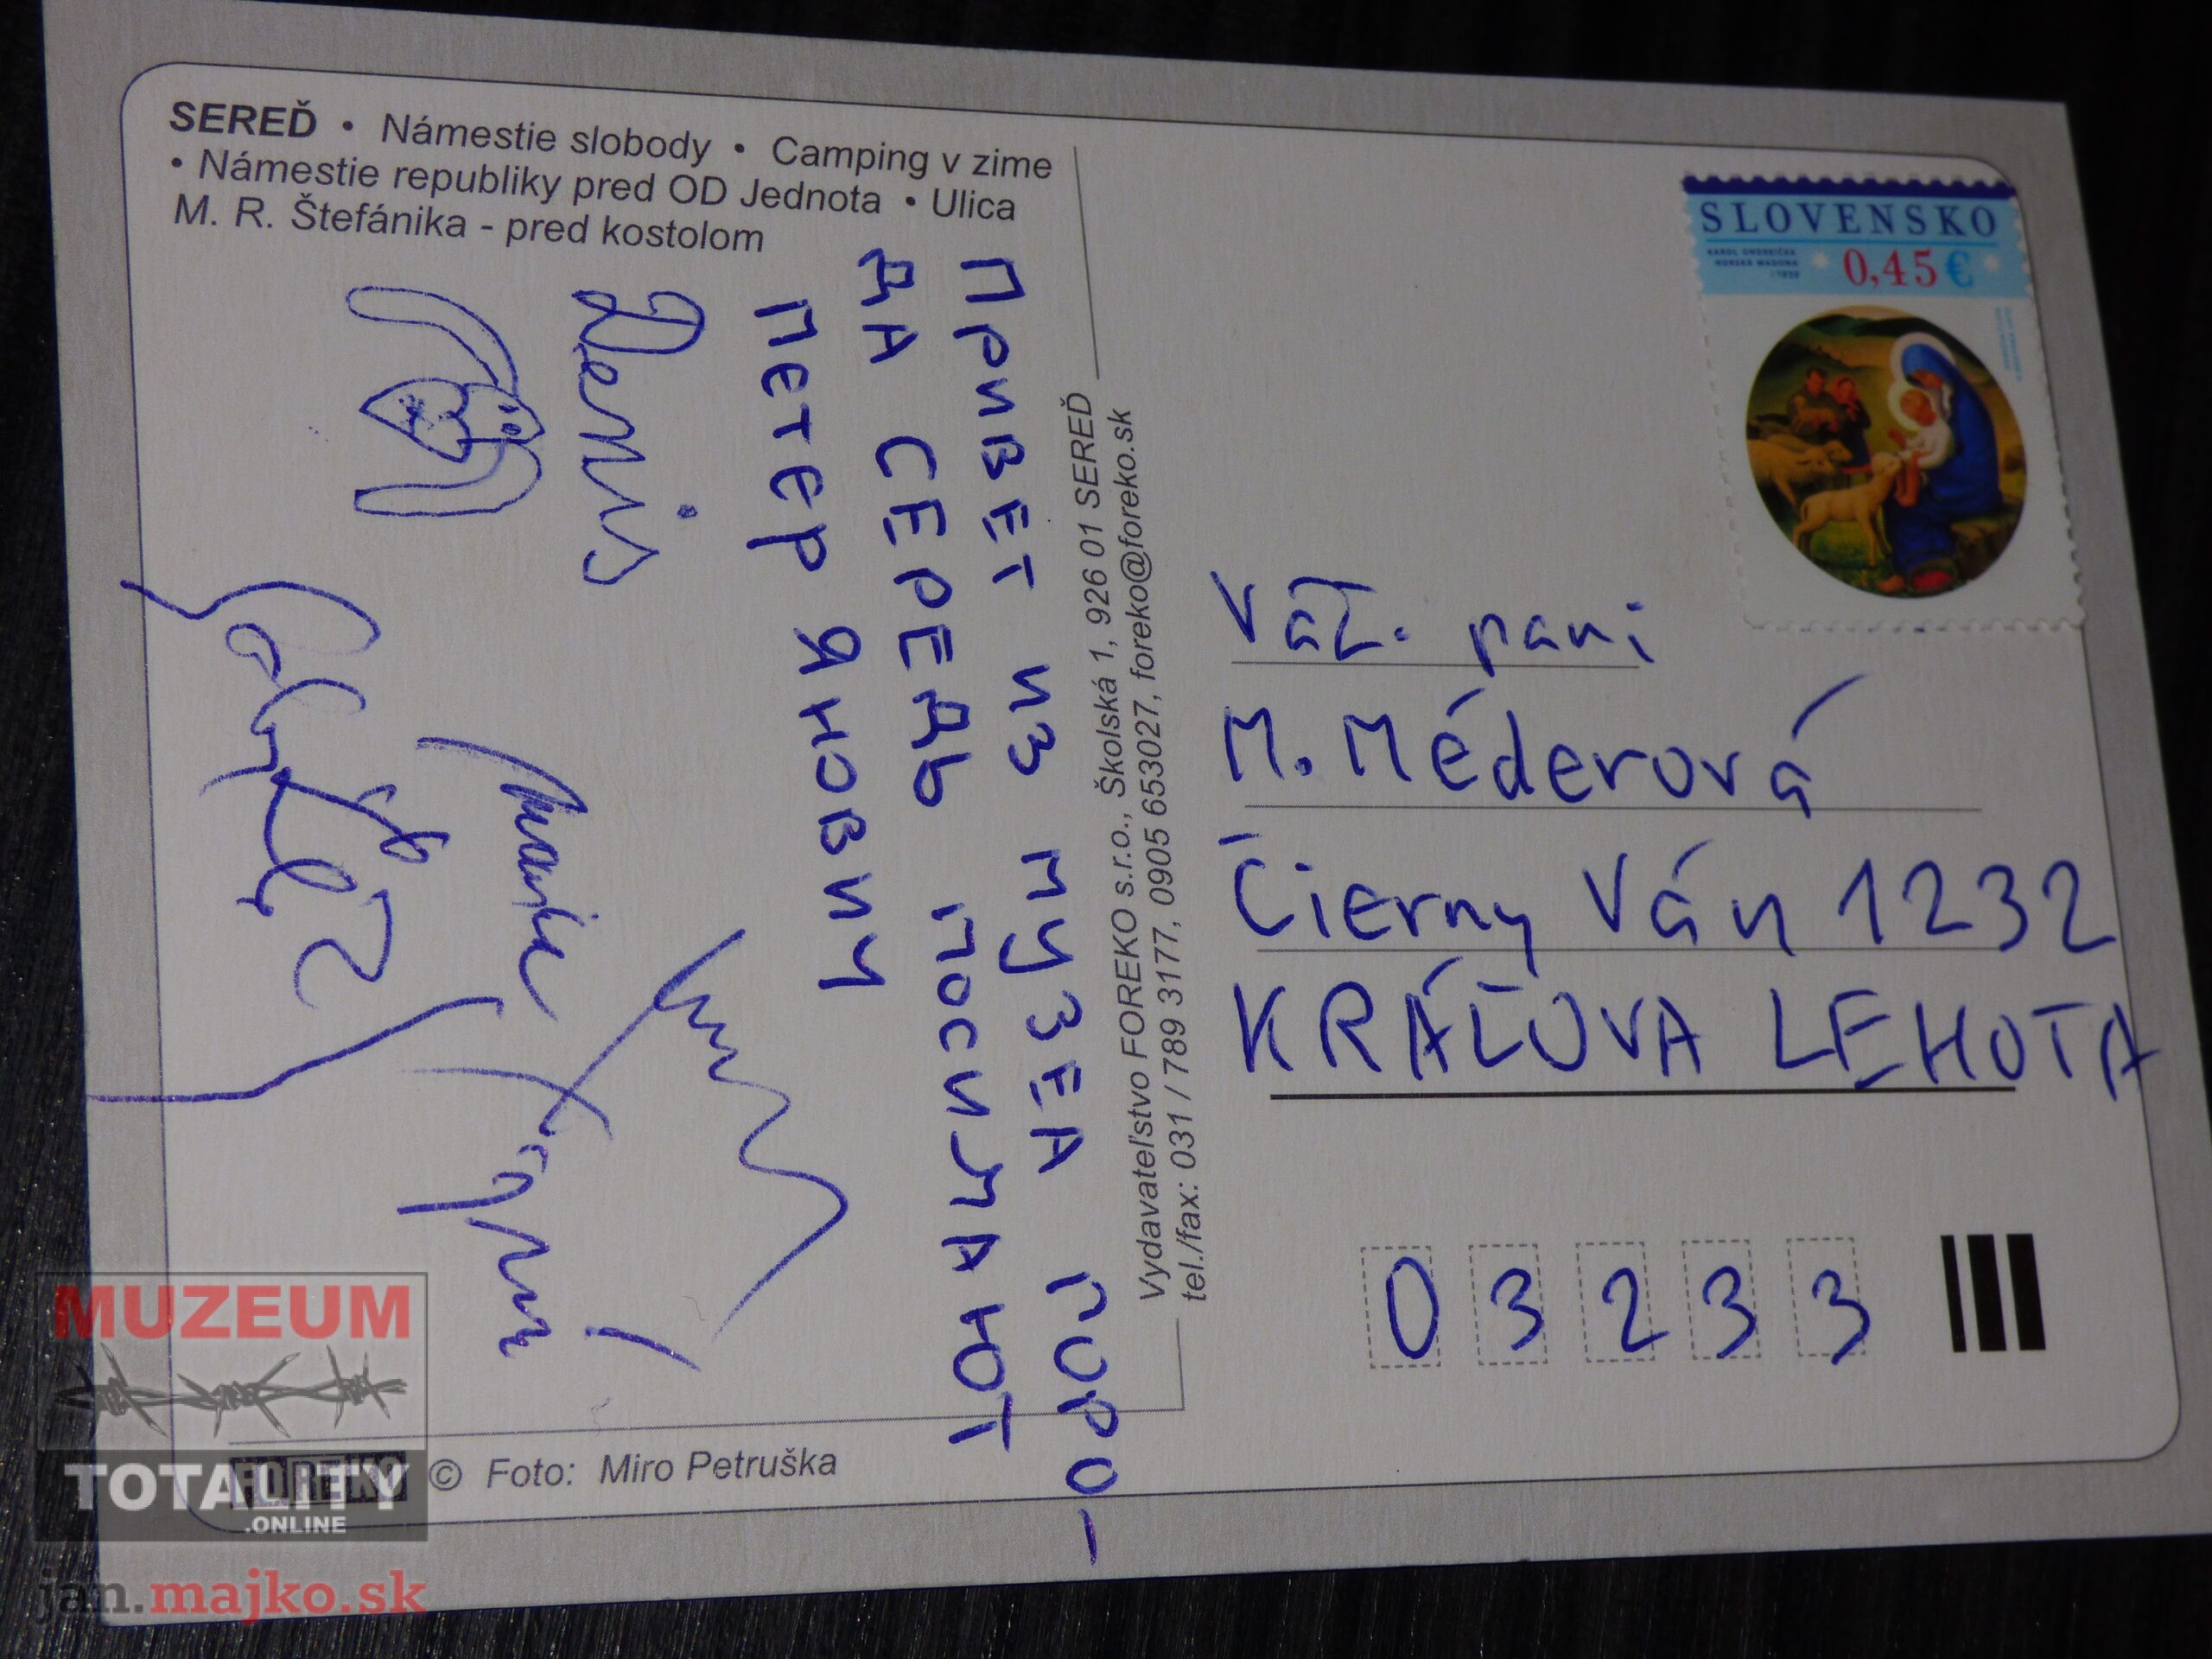 SEREĎ • Námestie slobody • Camping v zime
• Námestie republiky pred OD Jednota • Ulica
M. R. Štefánika - pred kostolom
ПРИВЕТ ИЗ МУЗЕА ГОРО-
ДА СЕРЕДЬ ПОСИЛАЮТ
ПЕТЕР ЯНОВИЧ
Denis
Vydavateľstvo FOREKO s.r.o., Školská 1, 926 01 SEREĎ
tel./fax: 031 / 789 3177, 0905 653027, foreko@foreko.sk
SLOVENSKO
0,45 €
Váž. pani
M. Méderová
Čierny Váh 1232
KRÁĽOVA LEHOTA
03233
FOREKO © Foto: Miro Petruška
MUZEUM
TOTALITY
.ONLINE
jan.majko.sk